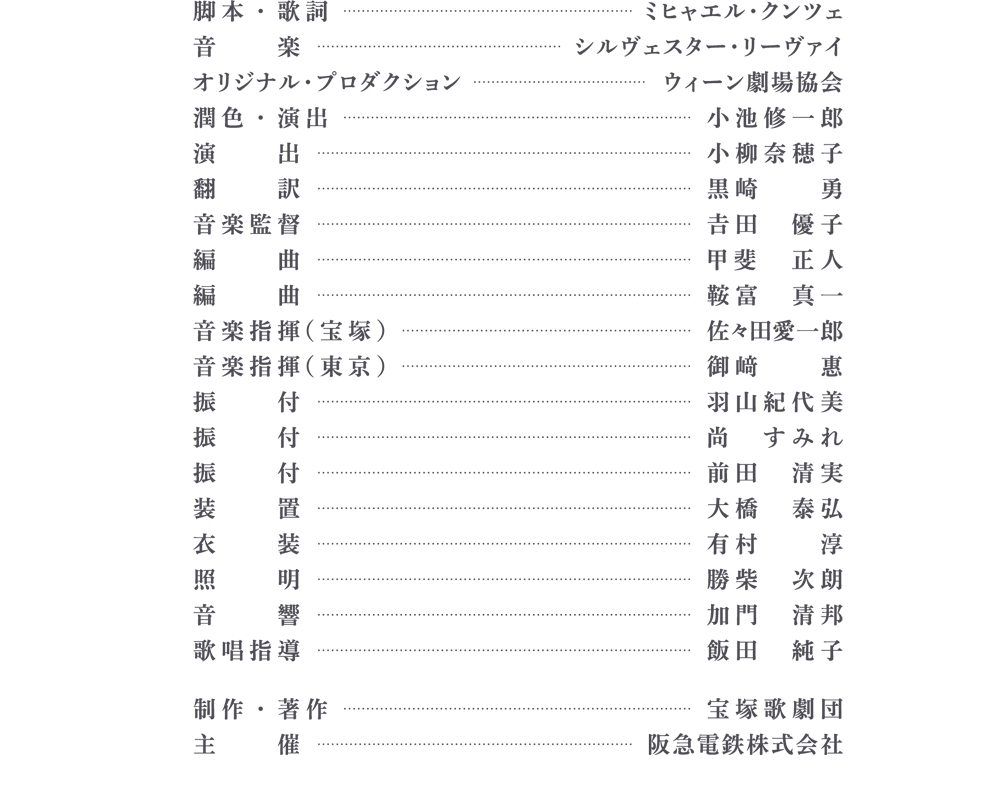 脚本・歌詞 ミヒャエル・クンツェ
音楽 シルヴェスター・リーヴァイ
オリジナル・プロダクション ウィーン劇場協会
潤色・演出 小池修一郎
演出 小柳奈穂子
翻訳 黒崎 勇
音楽監督 𠮷田 優子
編曲 甲斐 正人
編曲 鞍富 真一
音楽指揮(宝塚) 佐々田愛一郎
音楽指揮(東京) 御﨑 惠
振付 羽山紀代美
振付 尚 すみれ
振付 前田 清実
装置 大橋 泰弘
衣装 有村 淳
照明 勝柴 次朗
音響 加門 清邦
歌唱指導 飯田 純子
制作・著作 宝塚歌劇団
主催 阪急電鉄株式会社